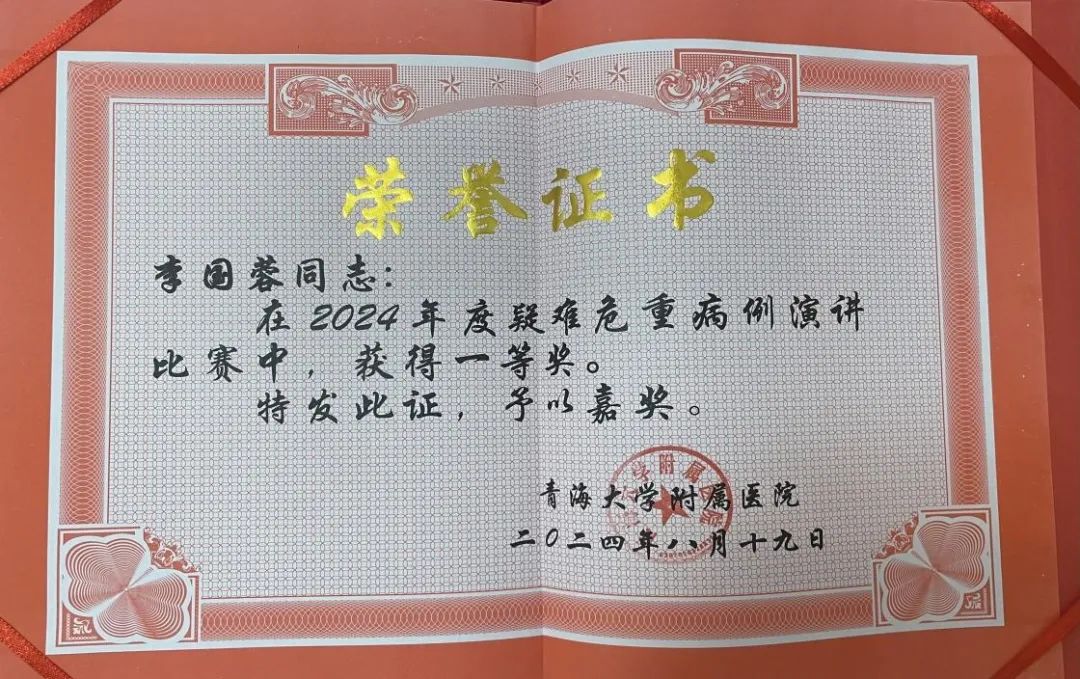 荣誉证书
李国蓉同志：
在2024年度疑难危重病例演讲
比赛中，获得一等奖。
特发此证，予以嘉奖。
青海大学附属医院
二〇二四年八月十九日